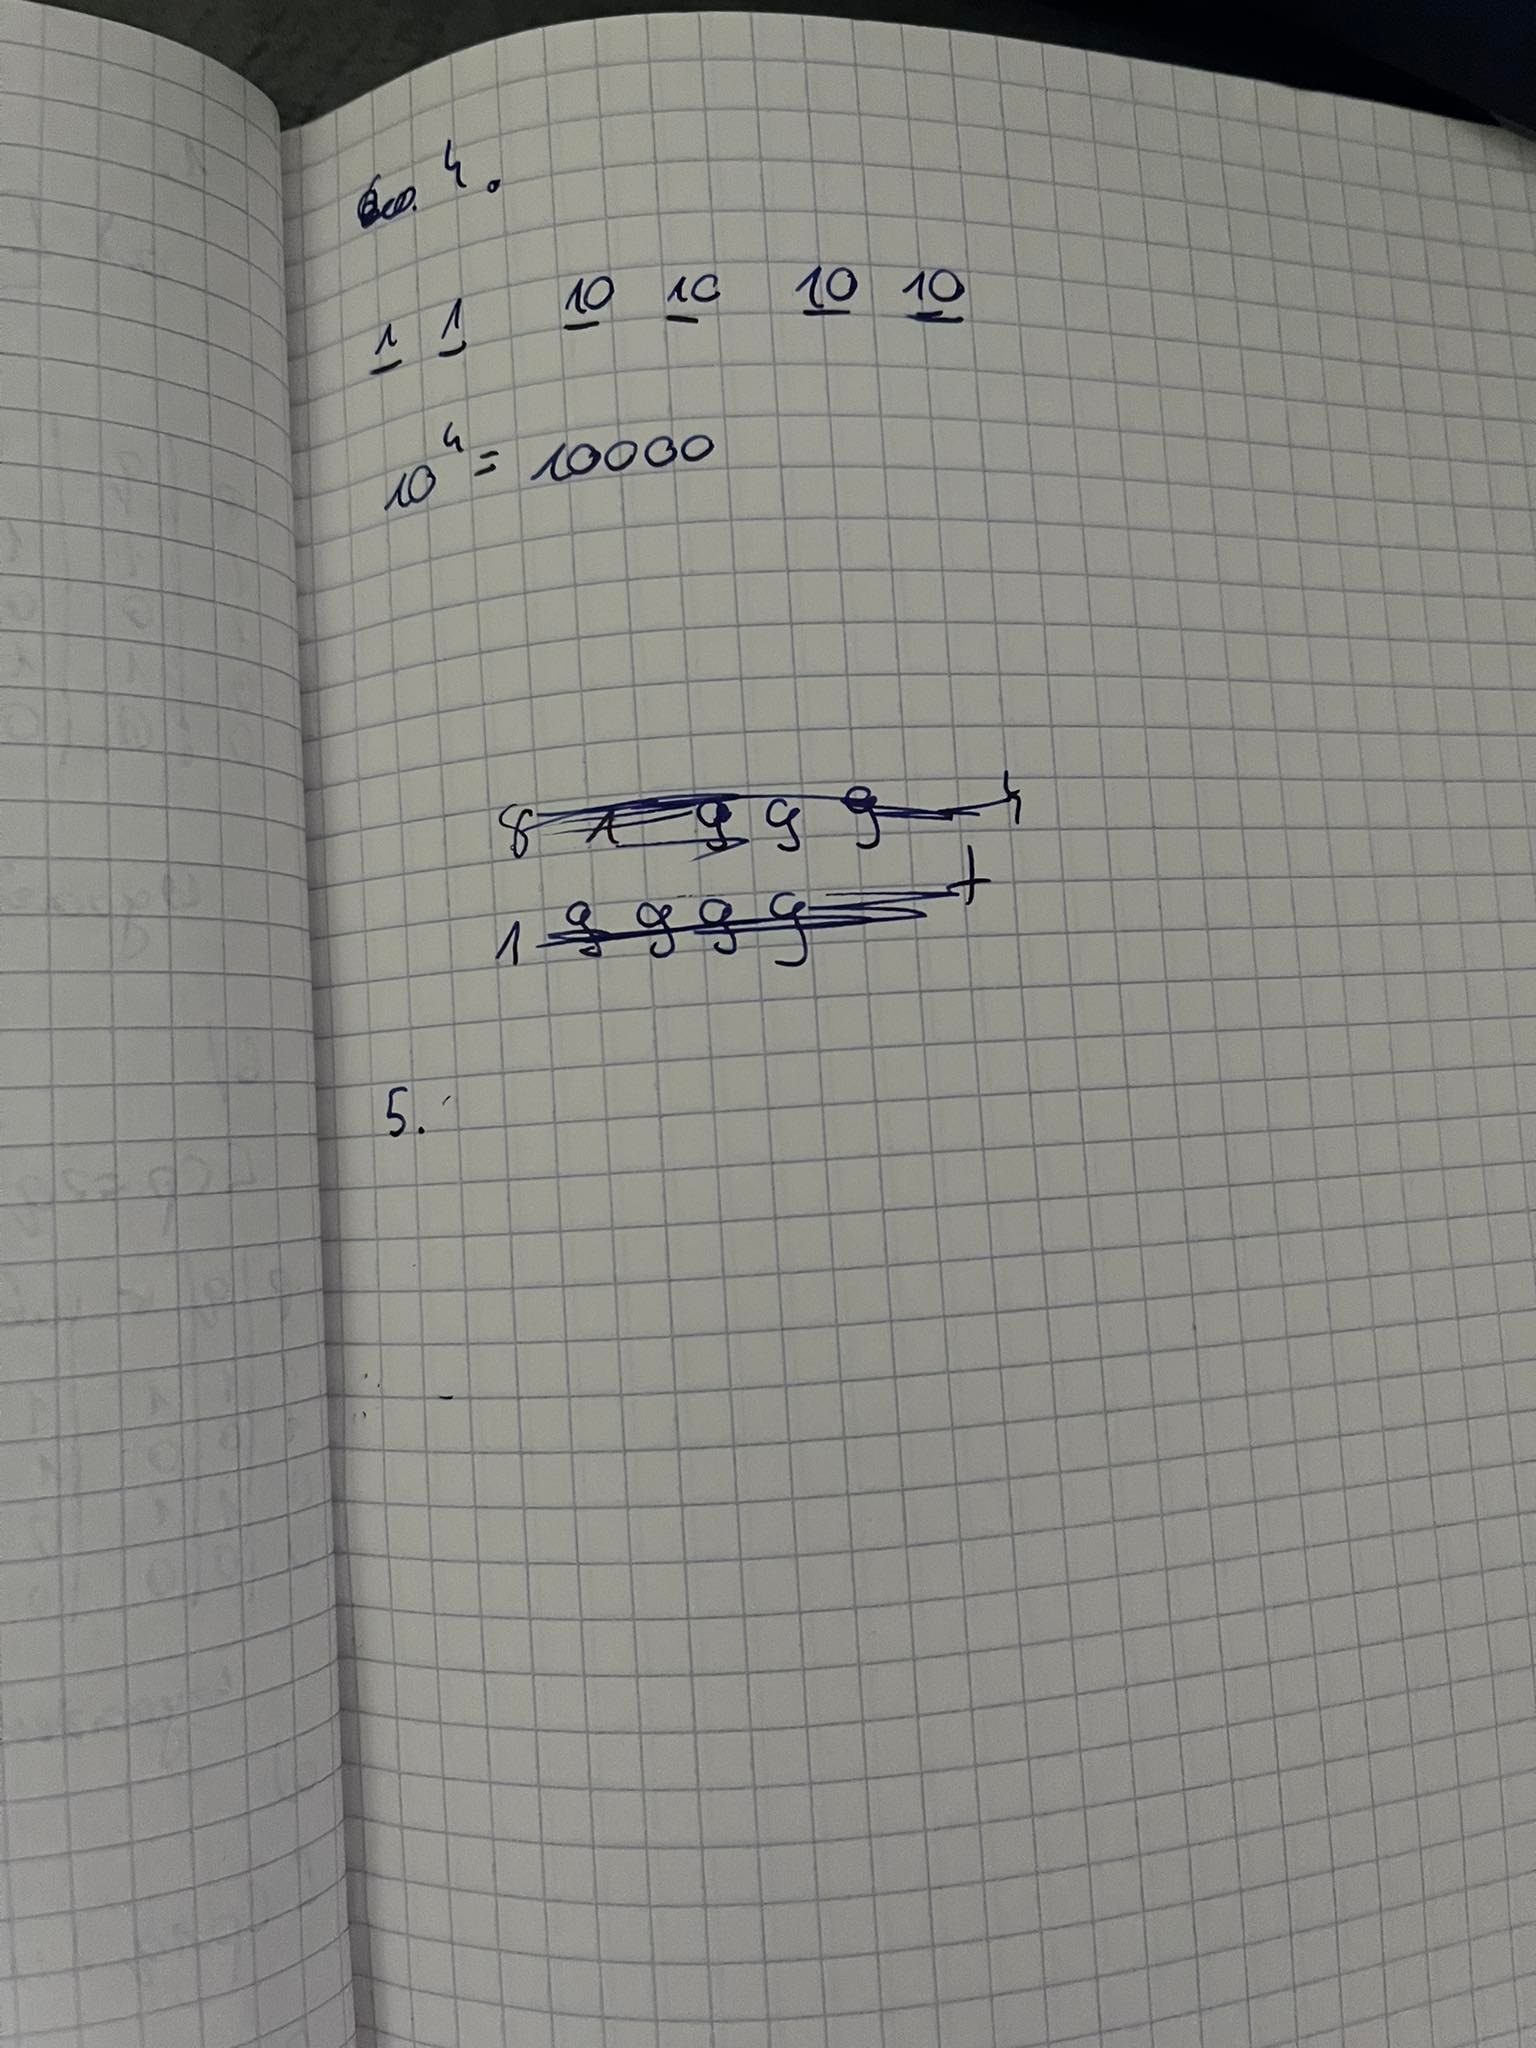 4.
1 1 10 10 10 10
10⁴ = 10000
8 1 9 9 9 4
1 9 9 9 9 +
5.